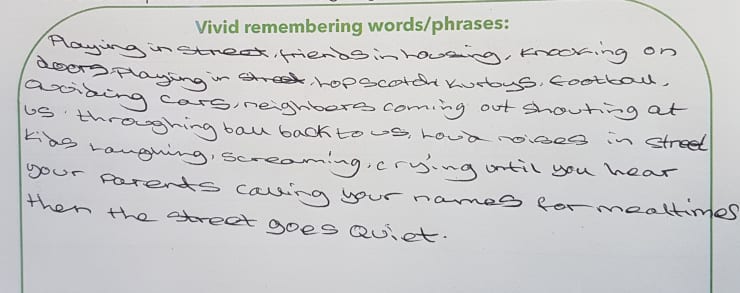 Vivid remembering words/phrases:
Playing in street, friends in housing, knocking on
doors, playing in street, hopscotch kurbys, football,
avoiding cars, neighbers coming out shouting at
us, throughing ball back to us, loud noises in street
kids laughing, screaming, crying until you hear
your parents calling your names for mealtimes
then the street goes quiet.